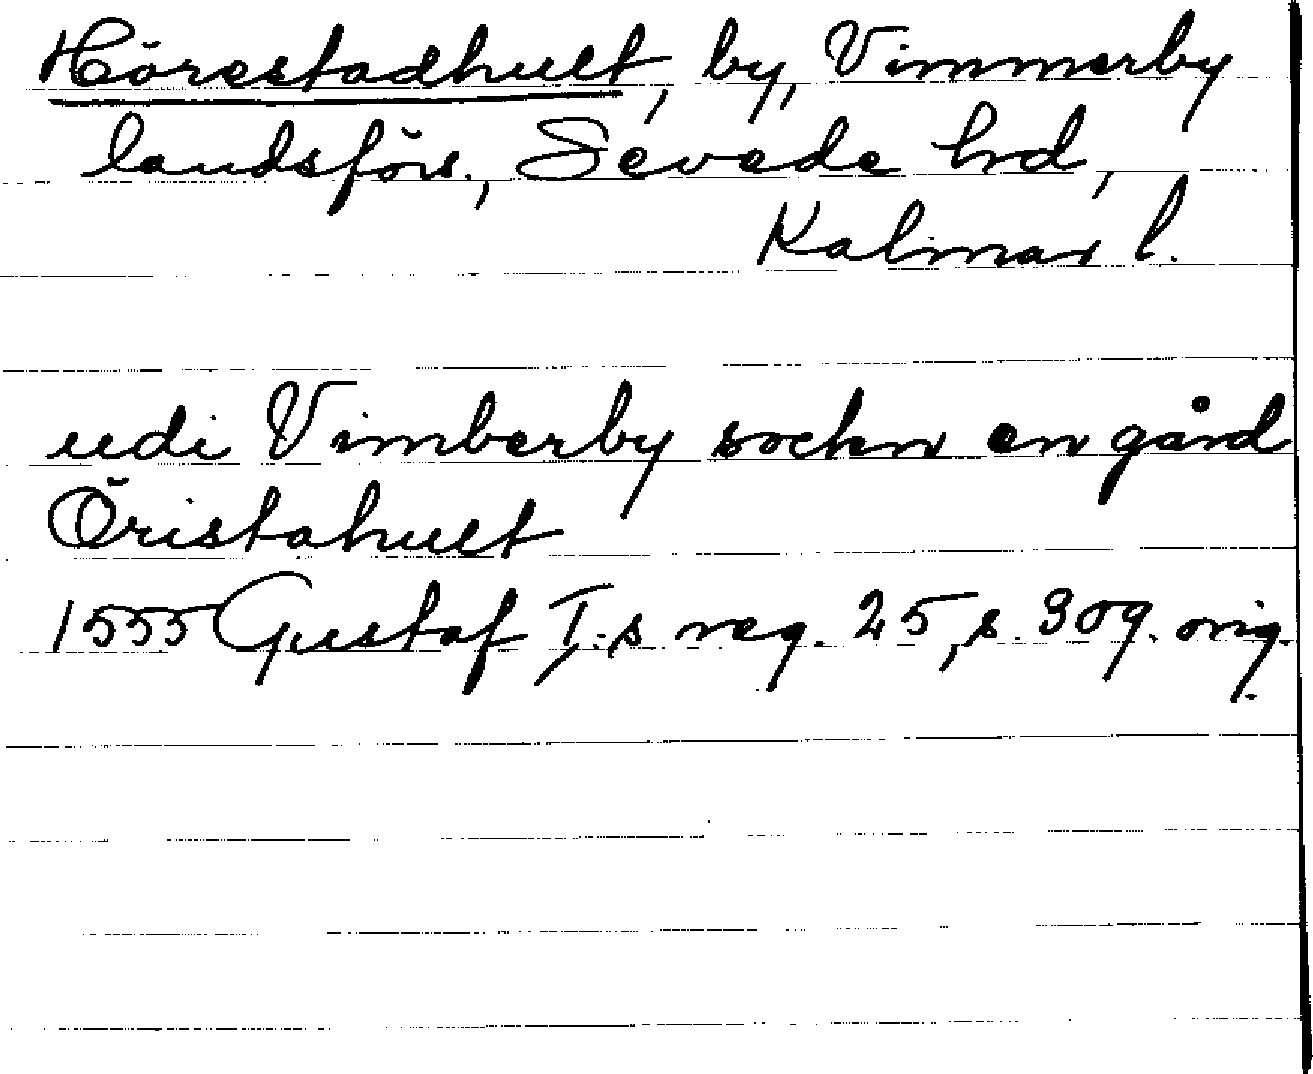 Hörestadhult, by, Vimmerby
landsförs., Sevede hd,
Kalmar l.
udi Vimberby sockn en gård
Öristahult
1555 Gustaf I:s reg. 25, s. 309. orig.